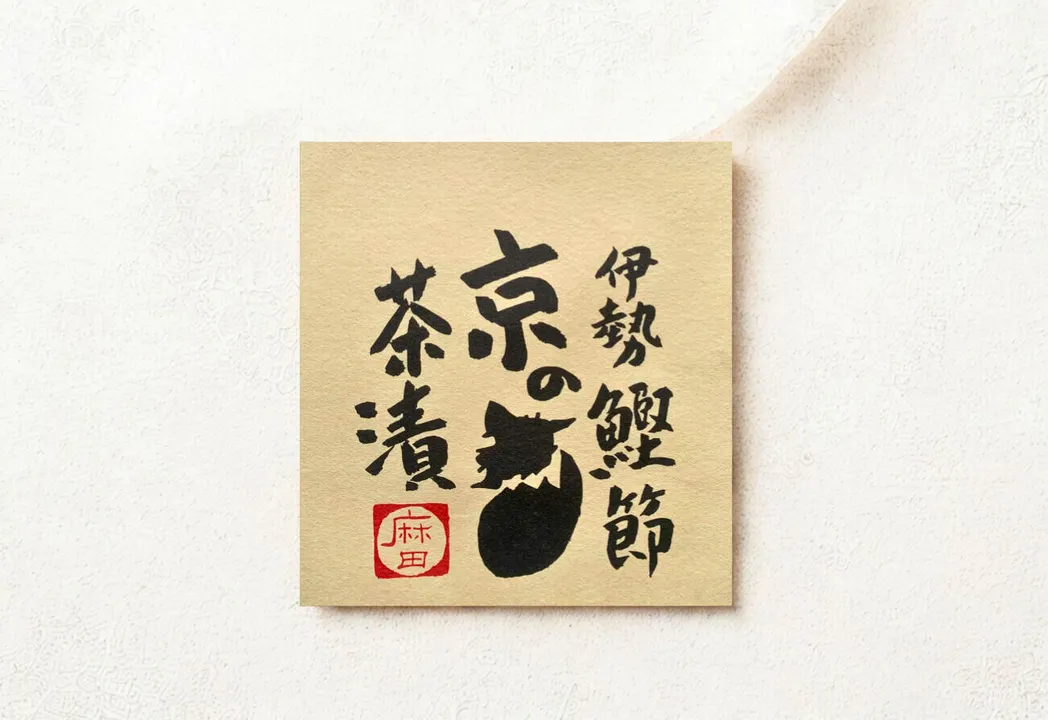 伊勢鰹節
京の
茶漬
麻田